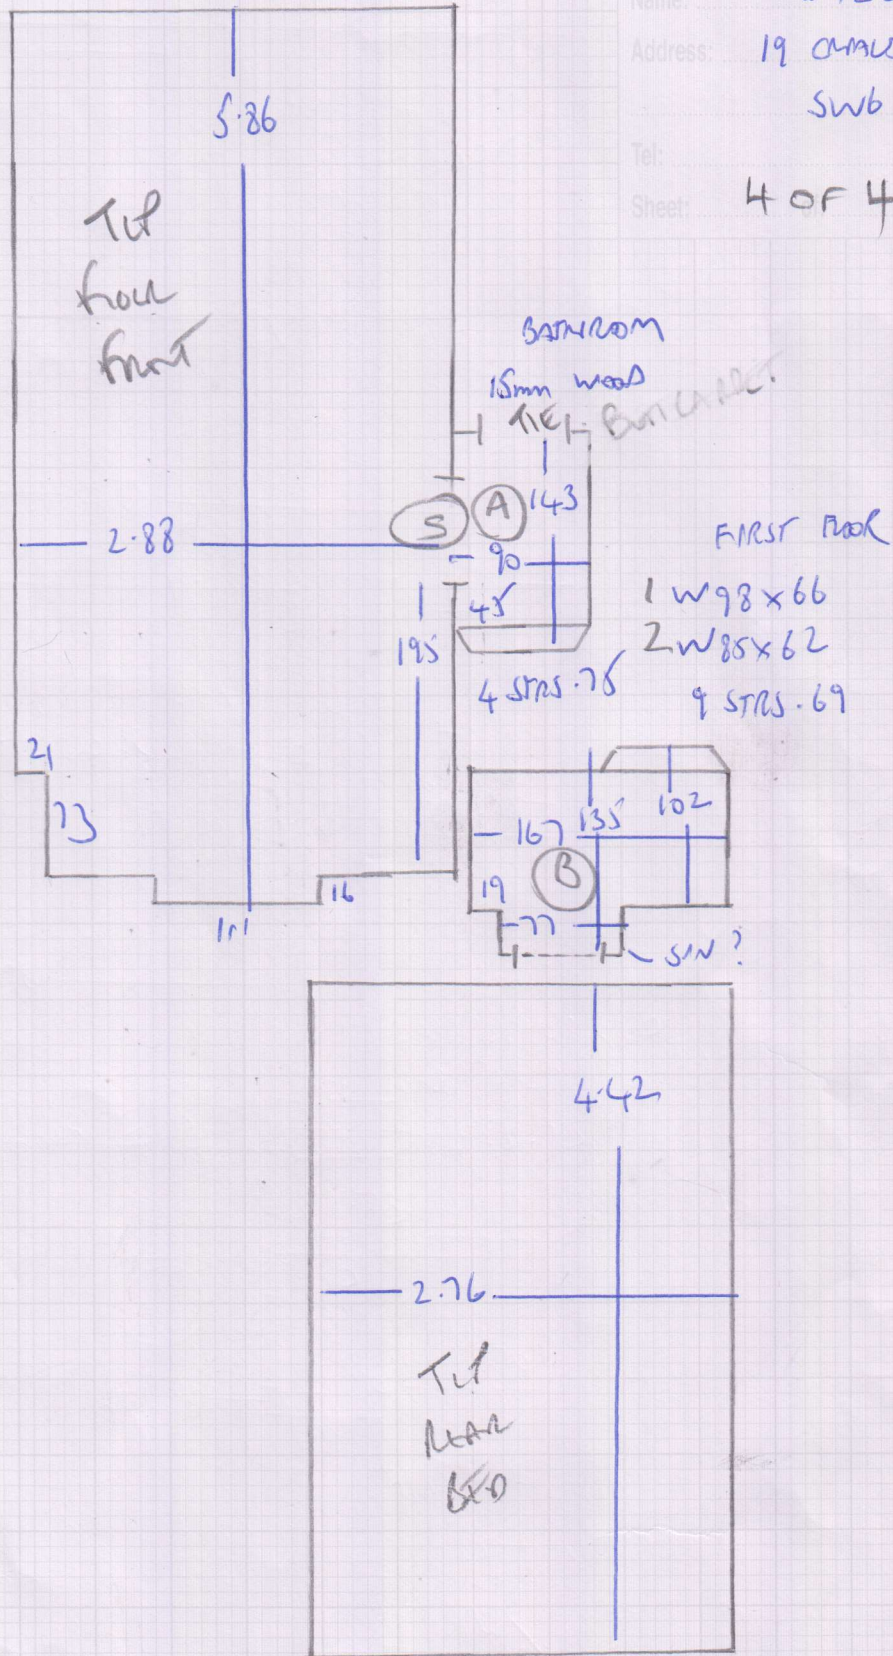 Name:
Address: 19
SW6
Tel:
Sheet: 4 OF 4
5.86
TOP
FLOOR
FRONT
BATHROOM
15mm WOOD
TILE
BUTT CARPET.
S
A
143
2.88
90
45
195
4 STRS .75
FIRST FLOOR
1 W 98 x 66
2 W 85 x 62
9 STRS .69
21
73
16
1.1
167
135
102
B
19
77
S/N?
4.42
2.76
TOP
REAR
BED